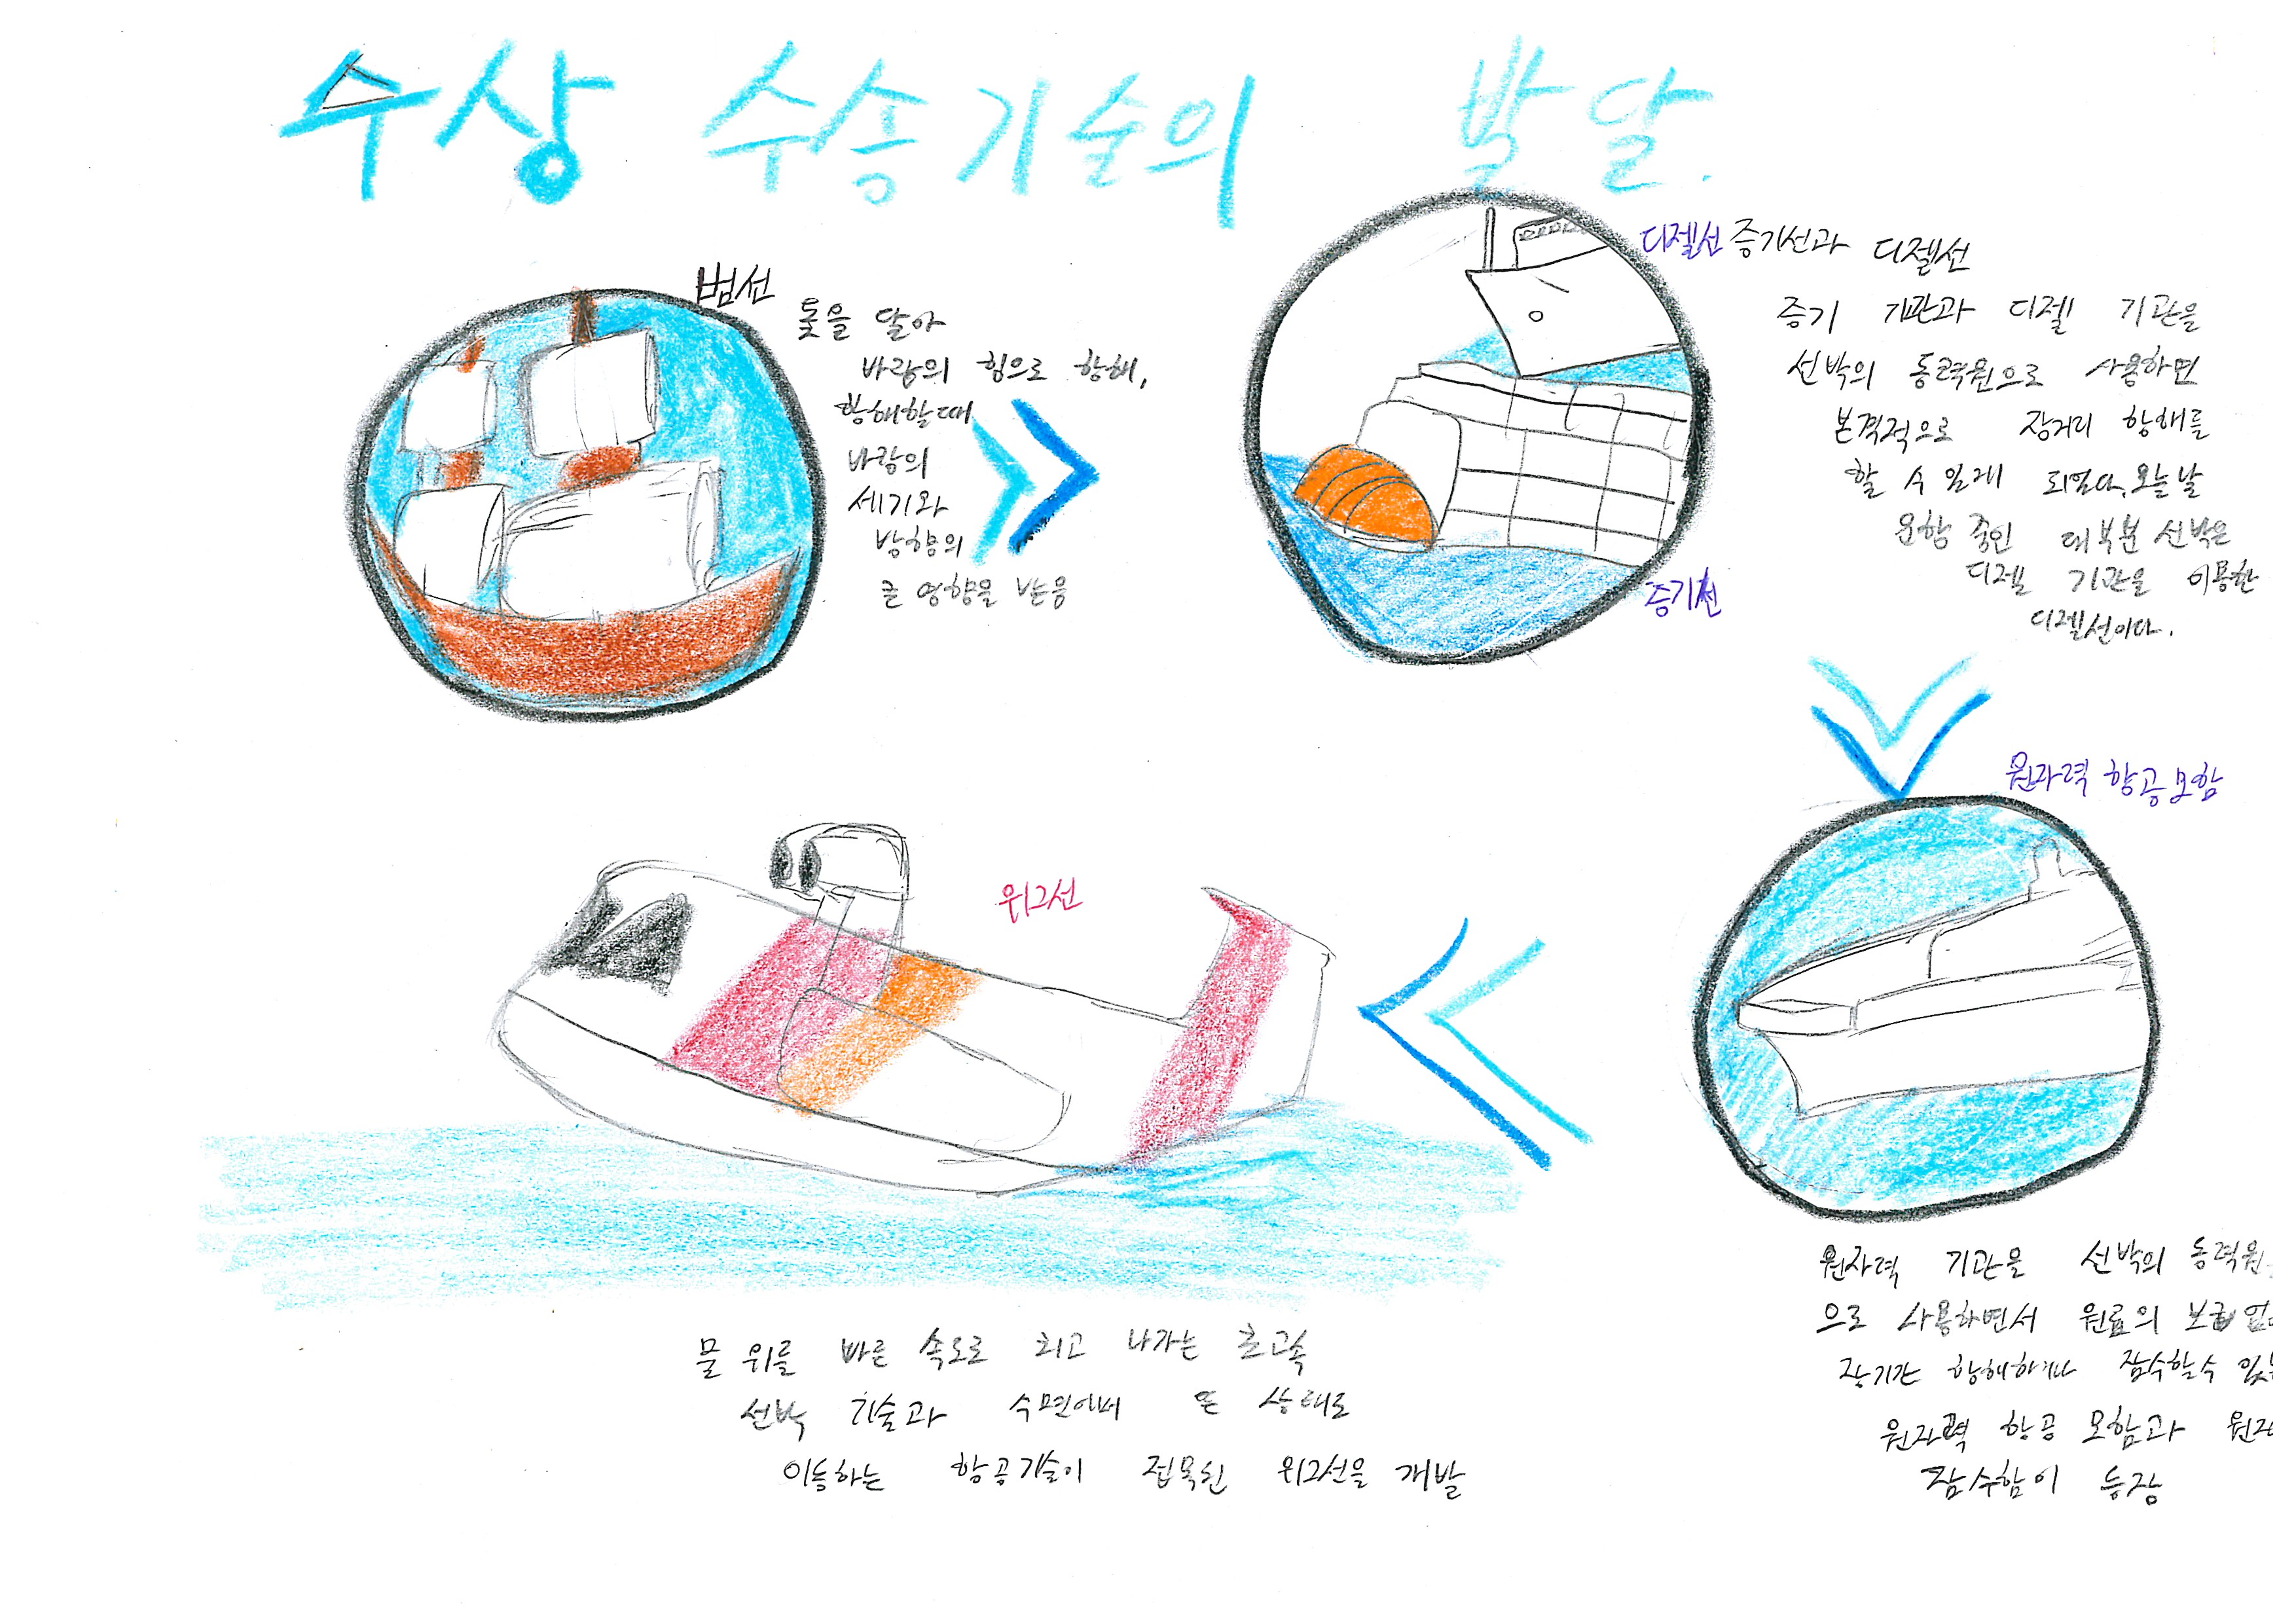 수상 수송기술의 발달.
범선
돛을 달아
바람의 힘으로 항해,
항해할때
바람의
세기와
방향의
큰 영향을 받음
디젤선 증기선과 디젤선
증기 기관과 디젤 기관을
선박의 동력원으로 사용하면
본격적으로 장거리 항해를
할 수 있게 되었다. 오늘날
운항 중인 대부분 선박은
디젤 기관을 이용한
디젤선이다.
증기선
원자력 항공모함
원자력 기관을 선박의 동력원
으로 사용하면서 원료의 보급
장기간 항해하거나 잠수할수
원자력 항공 모함과
잠수함이 등장
위그선
물 위를 빠른 속도로 치고 나가는 초고속
선박 기술과 수면에서 뜬 상태로
이동하는 항공기술이 접목된 위그선을 개발